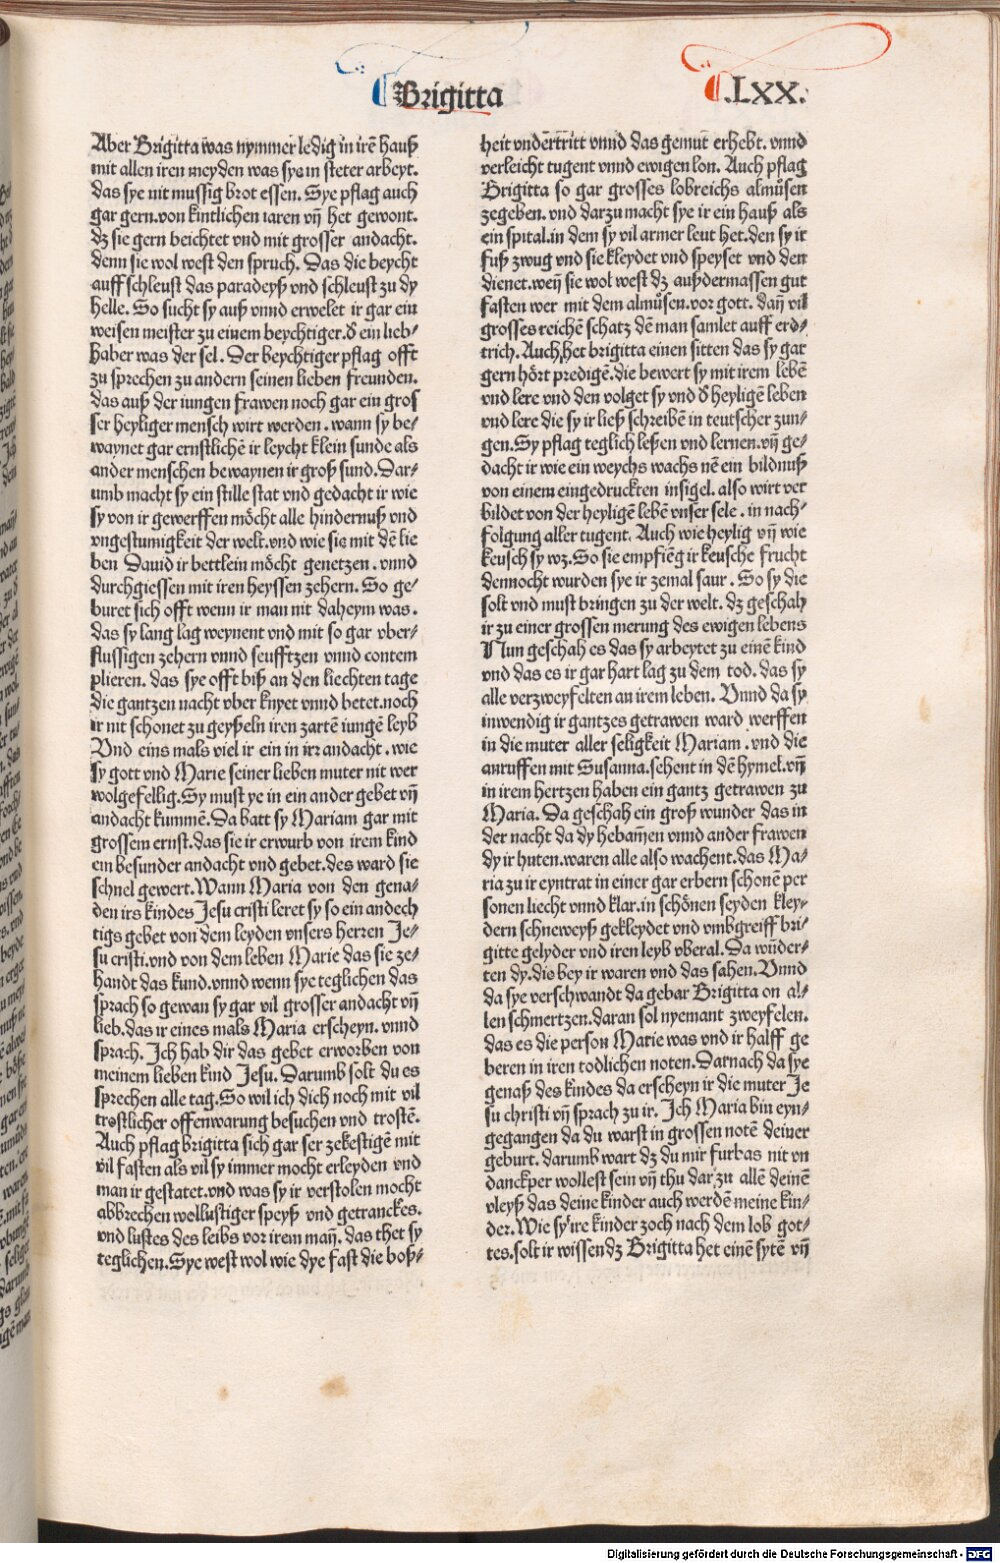 Brigitta
.LXX.
Aber Brigitta was nymmer ledig in irē hauß
mit allen iren meyden was sye in steter arbeyt.
das sye nit mussig brot essen. Sye pflag auch
gar gern. von kintlichen iaren vñ het gewont.
dz sie gern beichtet vnd mit grosser andacht.
denn sie wol west den spruch. Das die beycht
auff schleust das paradeyß vnd schleust zu dy
helle. So sucht sy auß vnnd erwelet ir gar ein
weisen meister zu einem beychtiger. d̄ ein lieb⸗
haber was der sel. Der beychtiger pflag offt
zu sprechen zu andern seinen lieben freunden.
das auß der iungen frawen noch gar ein gros
ser heyliger mensch wirt werden. wann sy be⸗
waynet gar ernstlichē ir leycht klein sunde als
ander menschen bewaynen ir groß sund. Dar⸗
umb macht sy ein stille stat vnd gedacht ir wie
sy von ir gewerffen möcht alle hindernuß vnd
vngestumigkeit der welt. vnd wie sie mit dē lie
ben Dauid ir bettlein möcht genetzen. vnnd
durchgiessen mit iren heyssen zehern. So ge⸗
buret sich offt wenn ir man nit daheym was.
das sy lang lag weynent vnd mit so gar vber⸗
flussigen zehern vnnd seufftzen vnnd contem
plieren. das sye offt biß an den liechten tage
die gantzen nacht vber knyet vnnd betet. noch
ir nit schonet zu geyßeln iren zartē iungē leyb
Vnd eins mals viel ir ein in irr andacht. wie
sy gott vnd Marie seiner lieben muter nit wer
wolgefellig. Sy must ye in ein ander gebet vñ
andacht kummē. Da batt sy Mariam gar mit
grossem ernst. das sie ir erwurb von irem kind
ein besunder andacht vnd gebet. des ward sie
schnel gewert. Wann Maria von den gena⸗
den irs kindes Jesu cristi leret sy so ein andech
tigs gebet von dem leyden vnsers herren Je⸗
su cristi. vnd von dem leben Marie das sie ze⸗
handt das kund. vnnd wenn sye teglichen das
sprach so gewan sy gar vil grosser andacht vñ
lieb. das ir eines mals Maria erscheyn. vnnd
sprach. Ich hab dir das gebet erworben von
meinem lieben kind Jesu. Darumb solt du es
sprechen alle tag. So wil ich dich noch mit vil
trostlicher offenwarung besuchen vnd trostē.
Auch pflag brigitta sich gar ser zekestigē mit
vil fasten als vil sy immer mocht erleyden vnd
man ir gestatet. vnd was sy ir verstolen mocht
abbrechen wollustiger speyß vnd getranckes.
vnd lustes des leibs vor irem mañ. das thet sy
teglichen. Sye west wol wie dye fast die boß⸗
heit vnderttritt vnnd das gemut erhebt. vnnd
verleicht tugent vnnd ewigen lon. Auch pflag
Brigitta so gar grosses lobreichs almůsen
zegeben. vnd darzu macht sye ir ein hauß als
ein spital. in dem sy vil armer leut het. den sy ir
fuß zwug vnd sie kleydet vnd speyset vnd den
dienet. weñ sie wol west dz außdermassen gut
fasten wer mit dem almůsen. vor gott. dañ vil
grosses reichē schatz dē man samlet auff erd⸗
trich. Auch het brigitta einen sitten das sy gar
gern hört predigē. die bewert sy mit irem lebē
vnd lere vnd den volget sy vnd d̄ heyligē leben
vnd lere die sy ir ließ schreibē in teutscher zun⸗
gen. Sy pflag teglich leßen vnd lernen. vñ ge⸗
dacht ir wie ein weychs wachs nē ein bildnuß
von einem eingedruckten insigel. also wirt ver
bildet von der heyligē lebē vnser sele. in nach⸗
folgung aller tugent. Auch wie heylig vñ wie
keusch sy wz. So sie empfiēg ir keusche frucht
dennocht wurden sye ir zemal saur. So sy die
solt vnd must bringen zu der welt. dz geschah
ir zu einer grossen merung des ewigen lebens
Nun geschah es das sy arbeytet zu einē kind
vnd das es ir gar hart lag zu dem tod. das sy
alle verzweyfelten an irem leben. Vnnd da sy
inwendig ir gantzes getrawen ward werffen
in die muter aller seligkeit Mariam. vnd die
anruffen mit Susanna. sehent in dē hymel. vñ
in irem hertzen haben ein gantz getrawen zu
Maria. Da geschah ein groß wunder das in
der nacht da dy hebam̄en vnnd ander frawen
dy ir huten. waren alle also wachent. das Ma⸗
ria zu ir eyntrat in einer gar erbern schonē per
sonen liecht vnnd klar. in schönen seyden kley⸗
dern schneweyß gekleydet vnd vmbgreiff bri⸗
gitte gelyder vnd iren leyb vberal. Da wūder⸗
ten dy. die bey ir waren vnd das sahen. Vnnd
da sye verschwandt da gebar Brigitta on al⸗
len schmertzen. daran sol nyemant zweyfelen.
das es die person Marie was vnd ir halff ge
beren in iren todlichen noten. Darnach da sye
genaß des kindes da erscheyn ir die muter Je
su christi vñ sprach zu ir. Ich Maria bin eyn⸗
gegangen da du warst in grossen notē deiner
geburt. darumb wart dz du mir furbas nit vn
danckper wollest sein vñ thu dar zu allē deinē
vleyß das deine kinder auch werdē meine kin⸗
der. Wie sy ire kinder zoch nach dem lob got⸗
tes. solt ir wissen dz Brigitta het einē sytē vñ
Digitalisierung gefördert durch die Deutsche Forschungsgemeinschaft - DFG